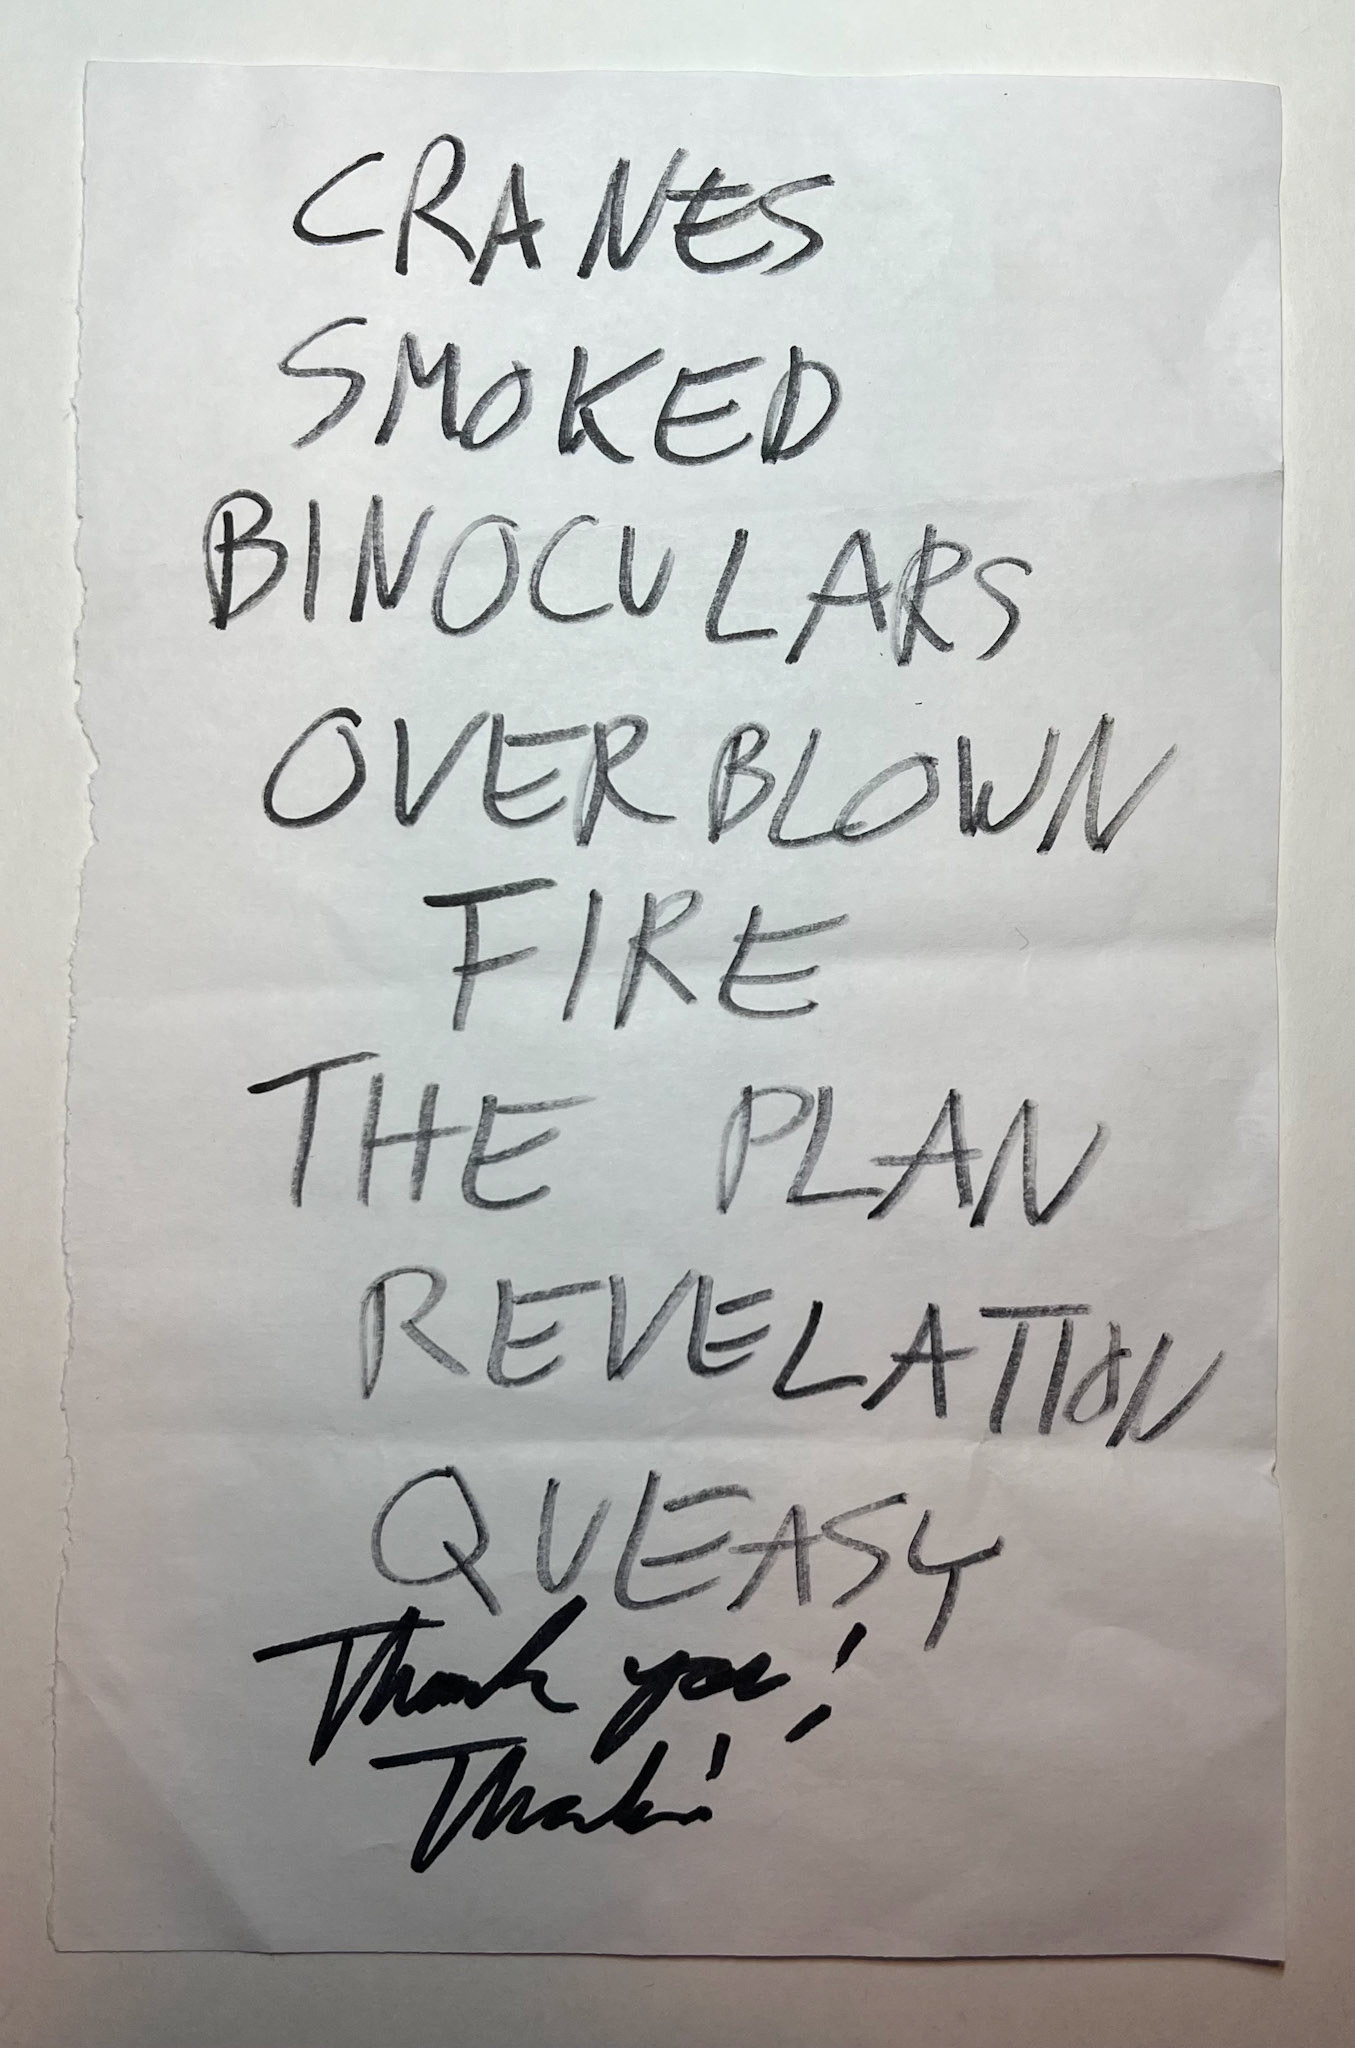 CRANES
SMOKED
BINOCULARS
OVERBLOWN
FIRE
THE PLAN
REVELATION
QUEASY
Thank you!